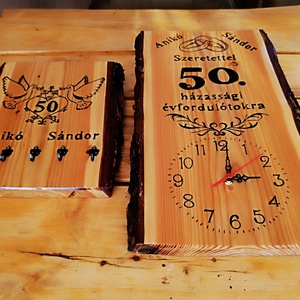 50.
nikó Sándor
Anikó Sándor
Szeretettel
50.
házassági
évfordulótokra
12
11 1
10 2
9 3
8 4
7 5
6